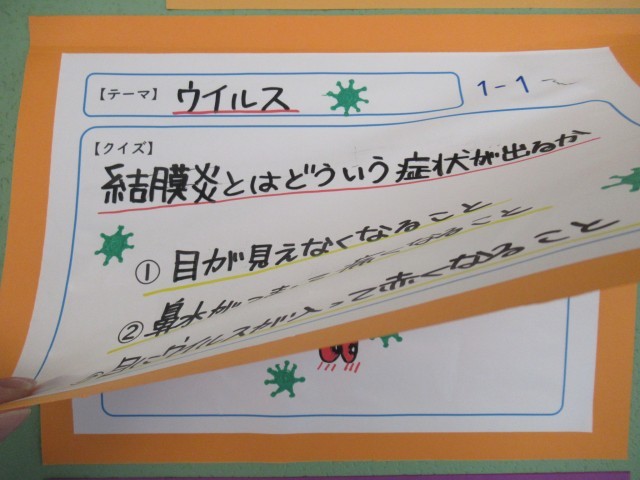 【テーマ】ウイルス
1-1
【クイズ】
結膜炎とはどういう症状が出るか
① 目が見えなくなること
② 鼻水が なること
目にウイルスが入って赤くなること